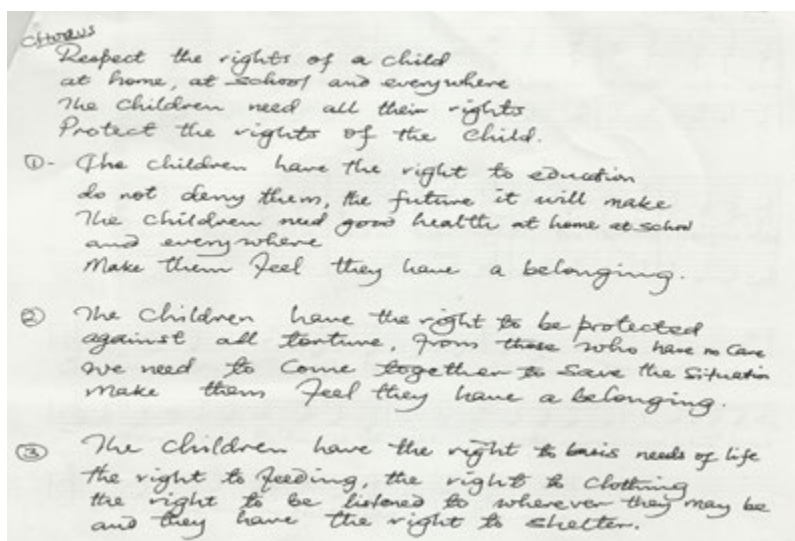 Chorus
Respect the rights of a child
at home, at school and everywhere
The Children need all their rights
Protect the rights of the Child.
①- The children have the right to education
do not deny them, the future it will make
The children need good health at home at school
and everywhere
Make them feel they have a belonging.
② The Children have the right to be protected
against all torture, from those who have no care
we need to come together to save the situation
Make them feel they have a belonging.
③ The Children have the right to basis needs of life
the right to feeding, the right to clothing
the right to be listened to wherever they may be
and they have the right to shelter.